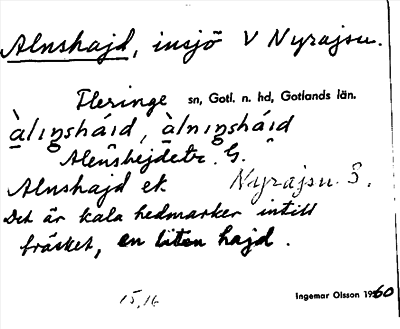 Alnshajd, insjö V Nyrajsu.
Fleringe sn, Gotl. n. hd, Gotlands län.
àlıŋsháıd, àlnıŋsháıd
Alenshejdetr. G.
Alnshajd ek. Nyrajsu S.
Det är kala hedmarker intill
träsket, en liten hajd.
15, 16
Ingemar Olsson 1960